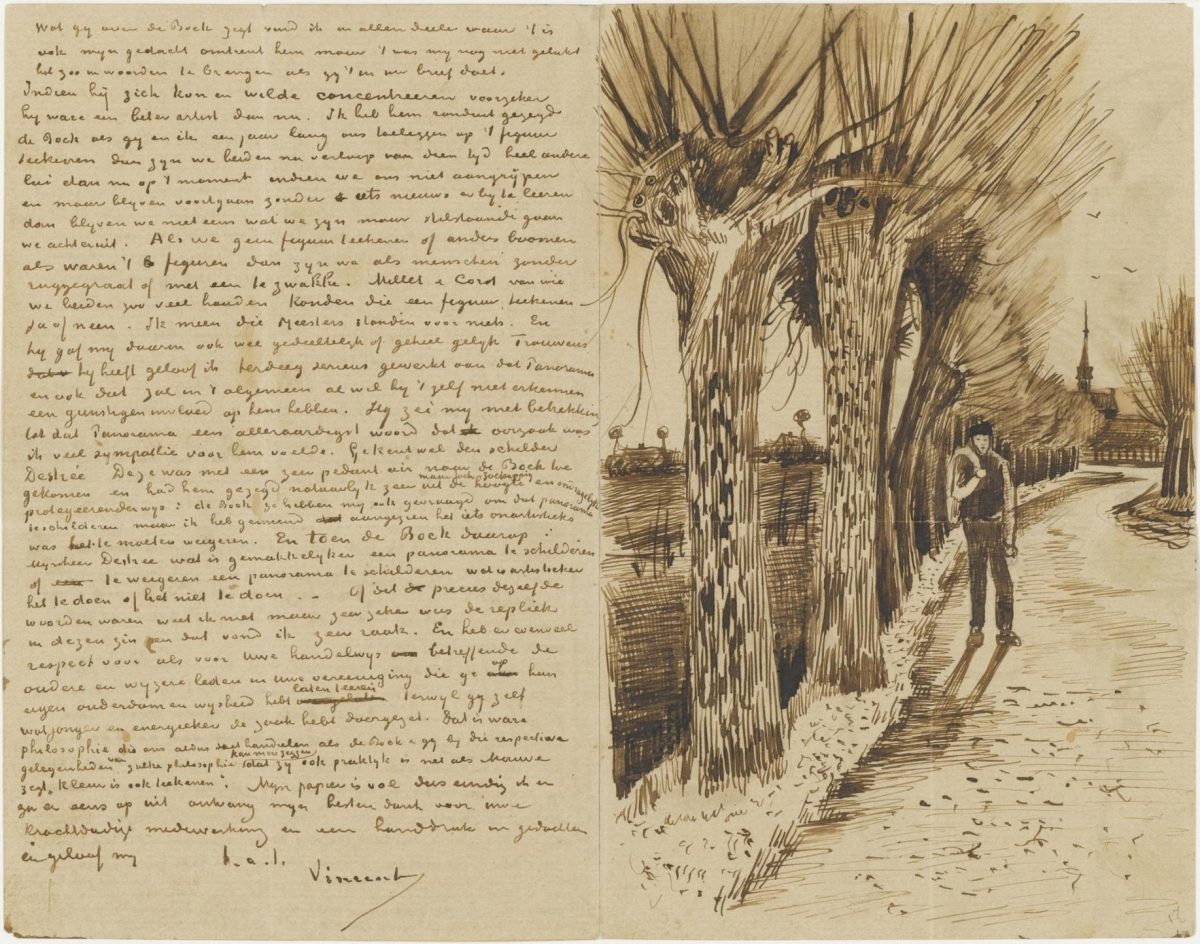 Wat gij over de Bock zegt vind ik in allen deele waar 't is
ook mijn gedacht omtrent hem maar 't was mij nog niet gelukt
het zoo in woorden te brengen als gij 't in uw brief doet.
Indien hij zich kon en wilde concentreeren voorzeker
hij ware een beter artist dan nu. Ik heb hem ronduit gezegd
de Bock als gij en ik een jaar lang ons toeleggen op 't figuur
teekenen dan zijn we beiden na verloop van dien tijd heel andere
lui dan nu op 't moment indien we ons niet aangrijpen
en maar blijven voortgaan zonder iets nieuws er bij te leeren
dan blijven we niet eens wat we zijn maar stilstaande gaan
we achteruit. Als we geen figuur teekenen of anders boomen
als waren 't figuren dan zijn we als menschen zonder
ruggegraat of met een te zwakke. Millet & Corot van wie
we beiden zoo veel houden konden die een figuur teekenen
Ja of neen. Ik meen die Meesters stonden voor niets. En
hij gaf mij daarin ook wel gedeeltelijk of geheel gelijk Trouwens
hij heeft geloof ik terdeeg serieus gewerkt aan dat Panorama
en ook dat zal in 't algemeen al wil hij 't zelf niet erkennen
een gunstigen invloed op hem hebben. Hij zei mij met betrekking
tot dat Panorama een alleraardigst woord dat oorzaak was
ik veel sympathie voor hem voelde. Ge kent wel den schilder
Destrée. Deze was met een zeer pedant air naar de Bock toe
gekomen en had hem gezegd natuurlijk zeer uit de hoogte maar toch zoetsappig en
protegeerenderwijs: de Bock ze hebben mij ook gevraagd om dat panorama
te schilderen maar ik heb gemeend aangezien het iets onartistieks
was te moeten weigeren. En toen de Bock daarop:
Mijnheer Destree wat is gemakkelijker een panorama te schilderen
of te weigeren een panorama te schilderen wat is artistieker
het te doen of het niet te doen . – Of dit precies dezelfde
woorden waren weet ik niet maar zeer zeker was de repliek
in dezen zin en dat vond ik zeer raak. En heb er evenveel
respect voor als voor Uwe handelwijs betreffende de
oudere en wijzere leden in uwe vereeniging die ge aan hun
eigen ouderdom en wijsheid hebt laten terwijl gij zelf
wat jonger en energieker de zaak hebt doorgezet. Dat is ware
philosophie die ons aldus doet handelen als de Bock & gij bij die respectieve
gelegenheden van zulke philosophie kan men zeggen dat zij ook praktijk is net als Mauve
zegt „Kleur is ook teekenen". Mijn papier is vol dus eindig ik en
ga er eens op uit ontvang mijn besten dank voor uwe
krachtdadige medewerking en een handdruk in gedachten
en geloof mij
t. à. t.
Vincent